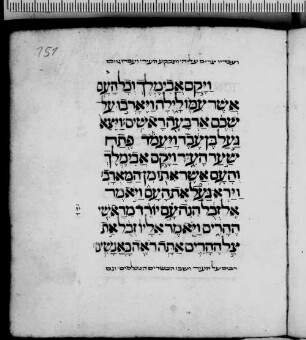 151
וַיָּקָם אֲבִימֶלֶךְ וְכָל הָעָם
אֲשֶׁר עִמּוֹ לָיְלָה וַיֶּאֶרְבוּ עַל
שְׁכֶם אַרְבָּעָה רָאשִׁים וַיֵּצֵא
גַּעַל בֶּן עֶבֶד וַיַּעֲמֹד פֶּתַח
שַׁעַר הָעִיר וַיָּקָם אֲבִימֶלֶךְ
וְהָעָם אֲשֶׁר אִתּוֹ מִן הַמַּאְרָב
וַיַּרְא גַּעַל אֶת הָעָם וַיֹּאמֶר
אֶל זְבֻל הִנֵּה עָם יוֹרֵד מֵרָאשֵׁי
הֶהָרִים וַיֹּאמֶר אֵלָיו זְבֻל אֵת
צֵל הֶהָרִים אַתָּה רֹאֶה כָּאֲנָשִׁים